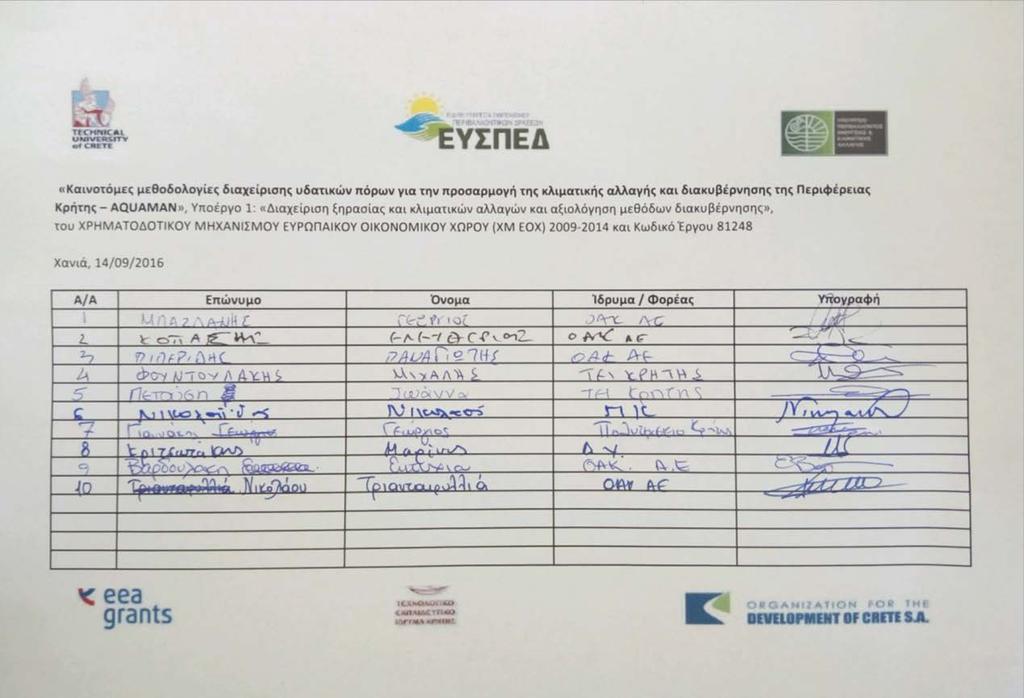 TECHNICAL
UNIVERSITY
of CRETE
ΠΕΡΙΒΑΛΛΟΝΤΙΚΩΝ ΔΡΑΣΕΩΝ
ΕΥΣΠΕΔ
ΥΠΟΥΡΓΕΙΟ
ΠΕΡΙΒΑΛΛΟΝΤΟΣ
ΕΝΕΡΓΕΙΑΣ &
ΚΛΙΜΑΤΙΚΗΣ
ΑΛΛΑΓΗΣ
«Καινοτόμες μεθοδολογίες διαχείρισης υδατικών πόρων για την προσαρμογή της κλιματικής αλλαγής και διακυβέρνησης της Περιφέρειας
Κρήτης – AQUAMAN», Υποέργο 1: «Διαχείριση ξηρασίας και κλιματικών αλλαγών και αξιολόγηση μεθόδων διακυβέρνησης»,
του ΧΡΗΜΑΤΟΔΟΤΙΚΟΥ ΜΗΧΑΝΙΣΜΟΥ ΕΥΡΩΠΑΙΚΟΥ ΟΙΚΟΝΟΜΙΚΟΥ ΧΩΡΟΥ (ΧΜ ΕΟΧ) 2009-2014 και Κωδικό Έργου 81248
Χανιά, 14/09/2016
Α/Α Επώνυμο Όνομα Ίδρυμα / Φορέας Υπογραφή
1 ΜΠΑΖΛΑΝΗΣ ΓΕΩΡΓΙΟΣ ΟΑΚ ΑΕ
2 ΕΛΕΥΘΕΡΙΟΣ ΟΑΚ ΑΕ
3 ΠΙΠΕΡΙΔΗΣ ΠΑΝΑΓΙΩΤΗΣ ΟΑΚ ΑΕ
4 ΦΟΥΝΤΟΥΛΑΚΗΣ ΜΙΧΑΛΗΣ ΤΕΙ ΚΡΗΤΗΣ
5 Ιωάννα ΤΕΙ Κρήτης
6 Νικόλαος Π/Κ
7 Γιαννάκη Γεώργιος Γεώργιος Πολυτεχνείο Κρήτης
8 Κριτσωτάκης Μαρίνος Δ.Υ.
9 Βαρδουλάκη Ευτυχία ΟΑΚ. Α.Ε
10 Τριανταφυλλιά Νικολάου Τριανταφυλλιά ΟΑΚ ΑΕ
eea
grants
ΤΕΧΝΟΛΟΓΙΚΟ
ΕΚΠΑΙΔΕΥΤΙΚΟ
ΙΔΡΥΜΑ ΚΡΗΤΗΣ
ORGANIZATION FOR THE
DEVELOPMENT OF CRETE S.A.